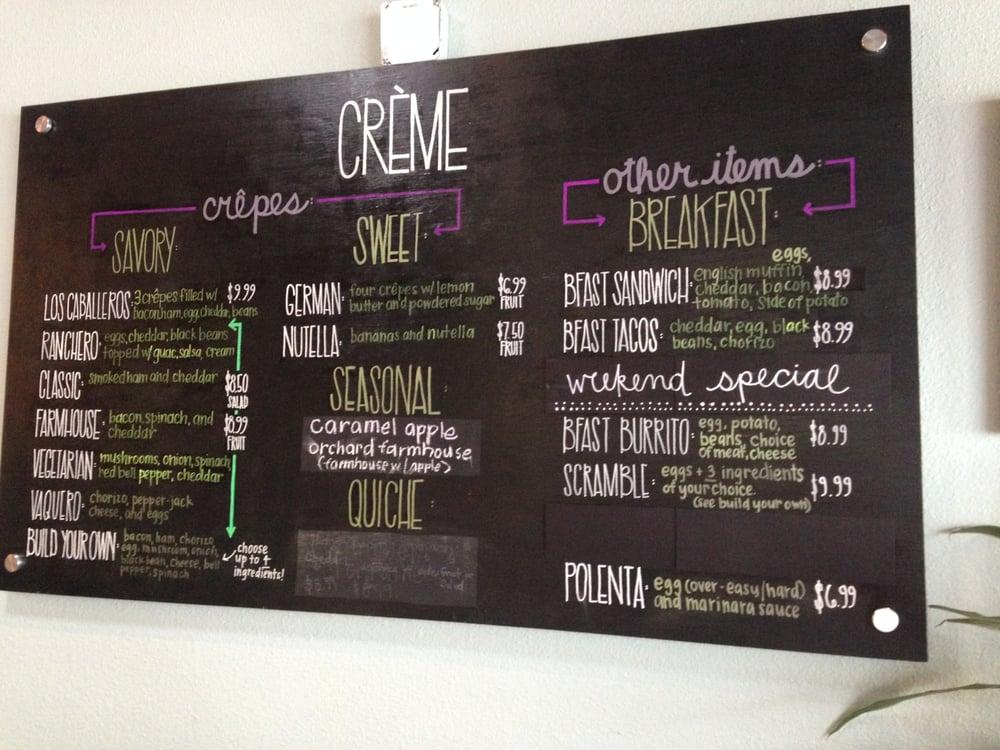 CRÈME
crêpes:
SAVORY:
LOS CABALLEROS: 3 crêpes filled w/ $9.99
bacon, ham, egg, cheddar, beans
RANCHERO: eggs, cheddar, black beans
topped w/ guac, salsa, cream
CLASSIC: smoked ham and cheddar
$8.50
SALAD
FARMHOUSE: bacon, spinach, and
cheddar
$8.99
FRUIT
VEGETARIAN: mushrooms, onion, spinach
red bell pepper, cheddar
VAQUERO: chorizo, pepper-jack
cheese, and eggs
BUILD YOUR OWN: bacon, ham, chorizo,
egg, mushroom, onion,
black bean, cheese, bell
pepper, spinach
choose
up to 4
ingredients!
SWEET:
GERMAN: four crêpes w/ lemon
butter and powdered sugar
$6.99
FRUIT
NUTELLA: bananas and nutella
$7.50
FRUIT
SEASONAL:
caramel apple
orchard farmhouse
(farmhouse w/ apple)
QUICHE:
other items:
BREAKFAST:
BEAST SANDWICH: eggs,
english muffin, $8.99
cheddar, bacon,
tomato, side of potato
BEAST TACOS: cheddar, egg, black $8.99
beans, chorizo
weekend special
BEAST BURRITO: egg, potato, $8.99
beans, choice
of meat, cheese
SCRAMBLE: eggs + 3 ingredients $9.99
of your choice.
(see build your own)
POLENTA: egg (over-easy/hard) $6.99
and marinara sauce